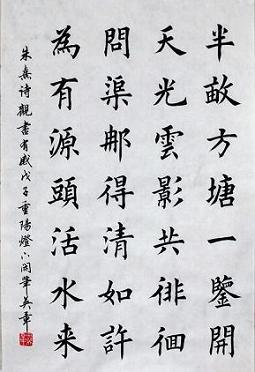 半畝方塘一鑒開
天光雲影共徘徊
問渠那得清如許
為有源頭活水来
朱熹诗觀書有感戊子重陽燈下開筆英章